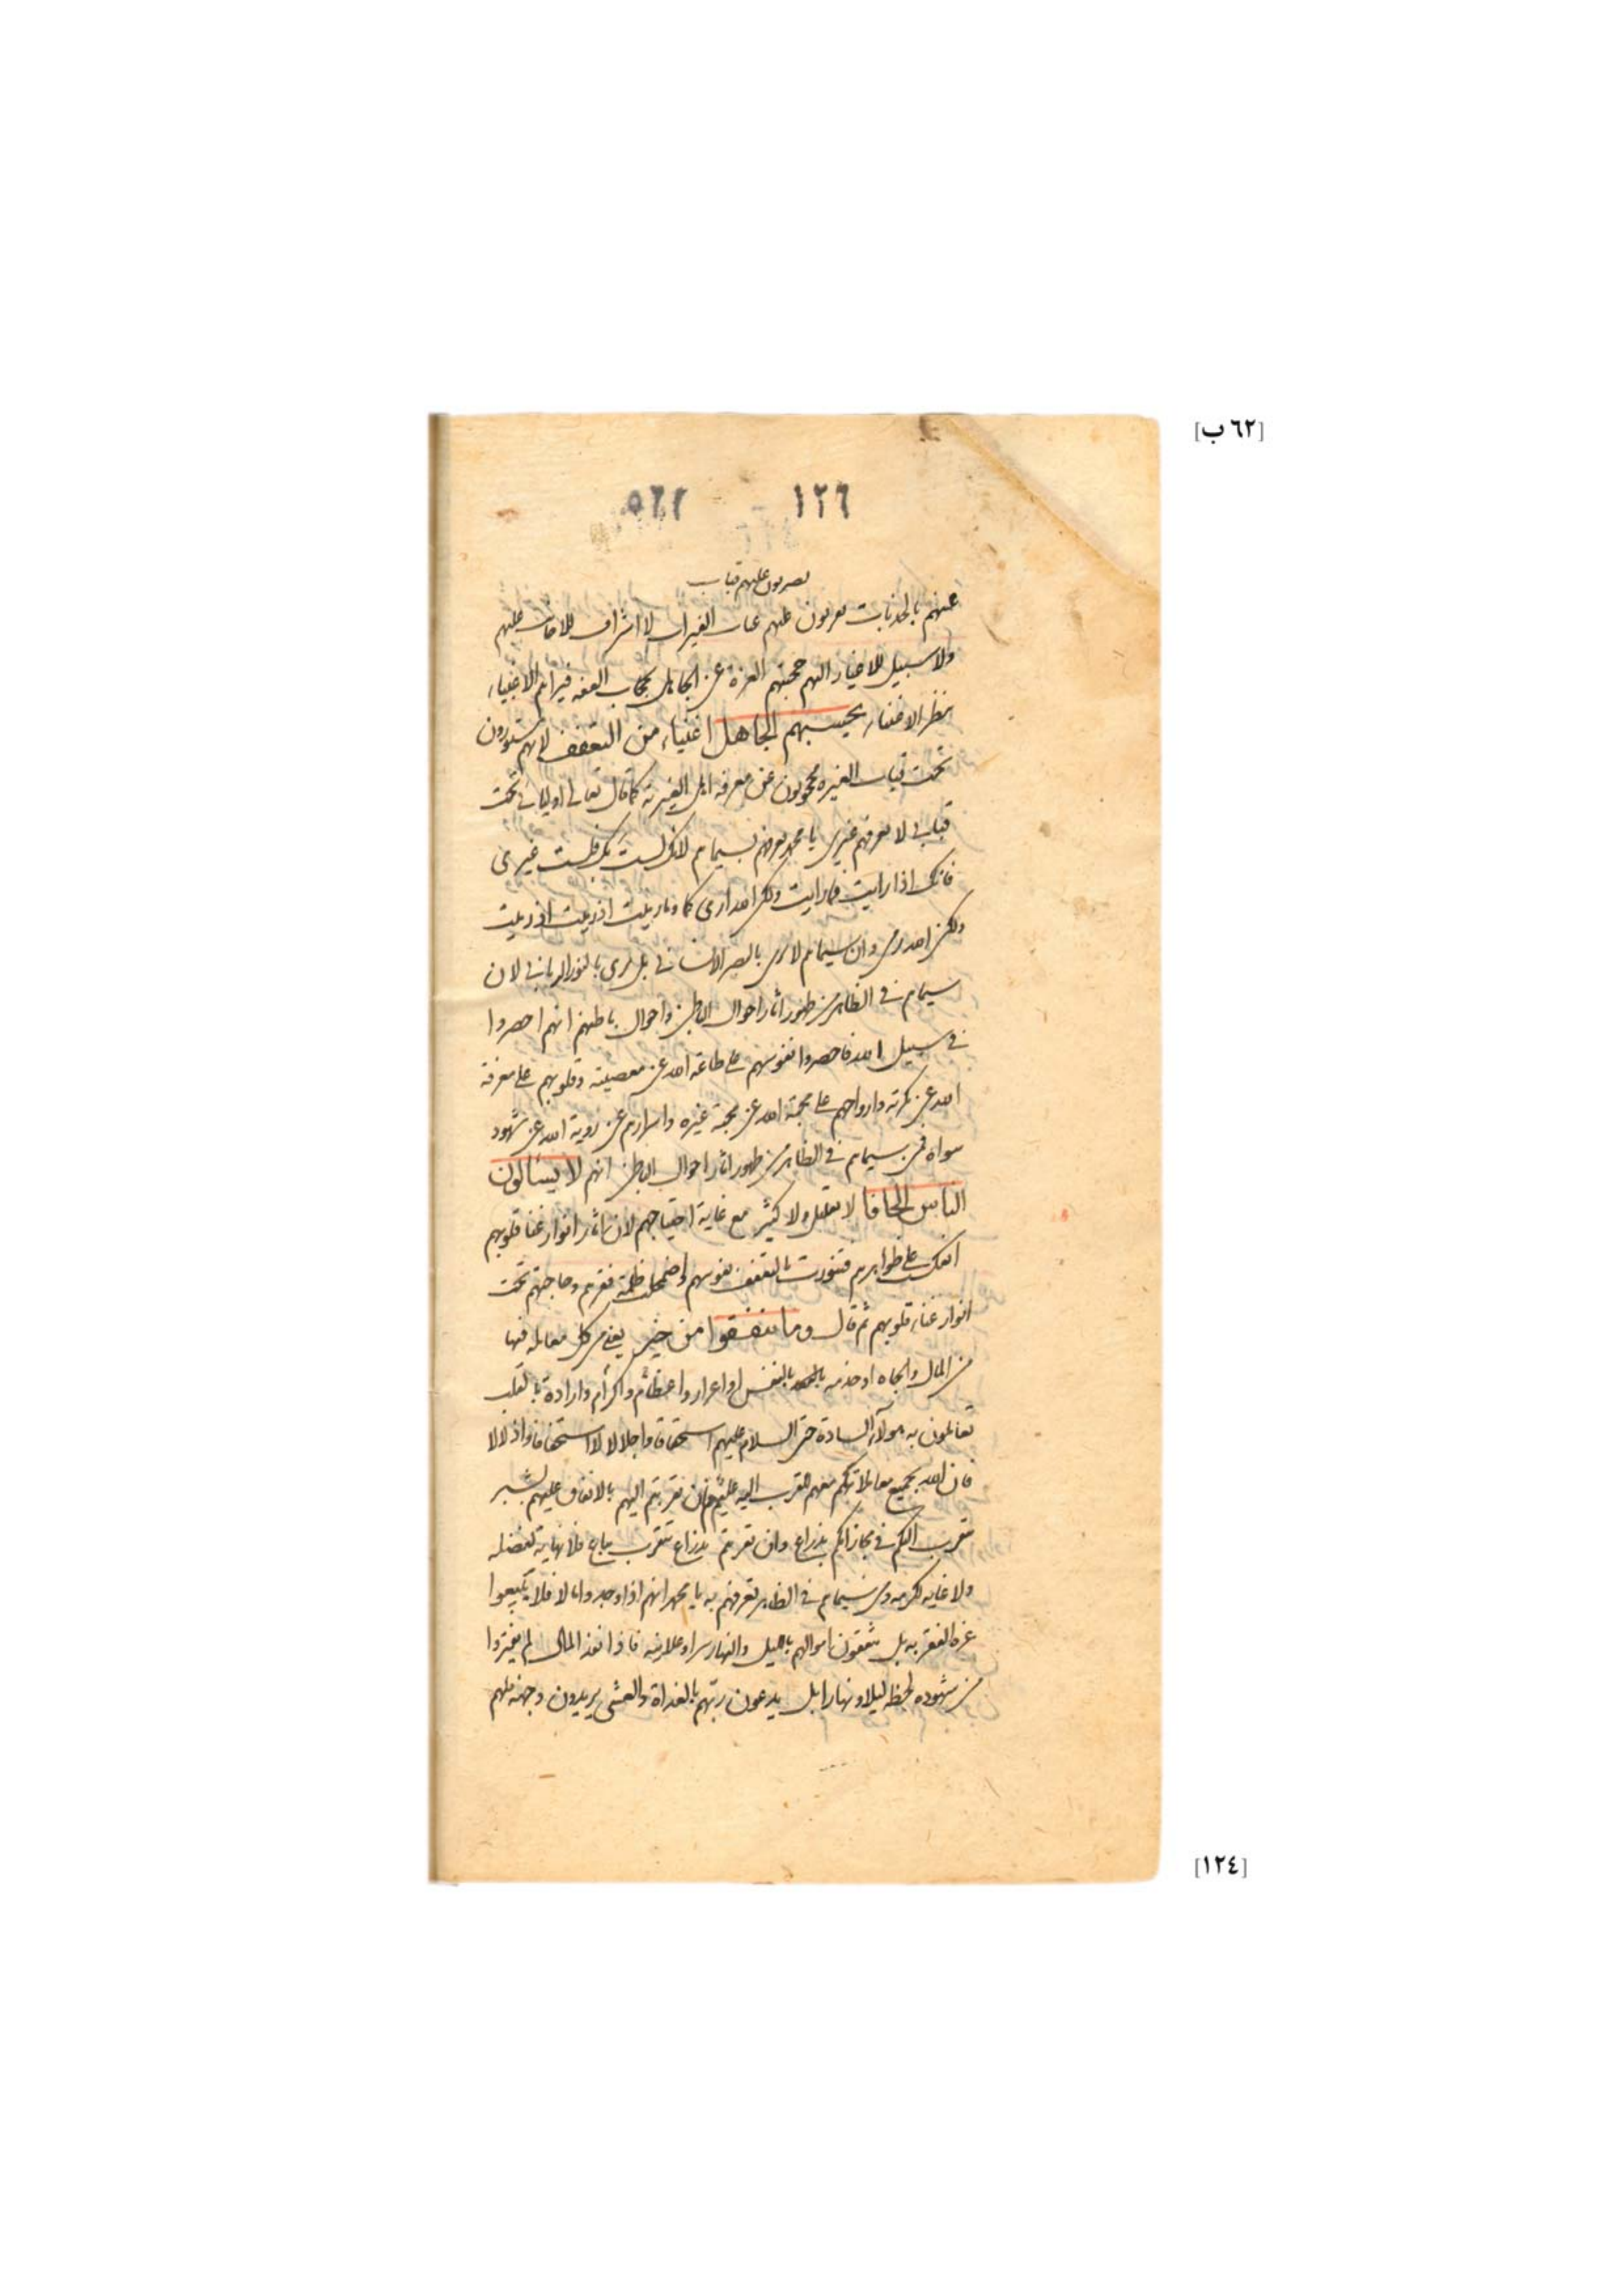 [٦٢ ب]
١٢٦ - ٥٦٢
يضربون عليهم قباب
عنهم بالجذبات يضربون عليهم الغيرات لا اشراف للافات عليهم
ولا سبيل للاغيار اليهم حجبتهم العزة عن الجاهل بحجاب العفة فيراهم الاغنياء
بنظر الاغنياء يحسبهم الجاهل اغنياء من التعفف لانهم مستورون
تحت قباب الغيرة محجوبون عن معرفة اهل الغيرية كما قال تعالى اوليائي تحت
قبابي لا يعرفهم غيري يا محمد تعرفهم بسيماهم لانك لست بك فلست غيري
فانك اذا رايت فما رايت ولكن الله اري كما وما رميت اذ رميت اذ رميت
ولكن الله رمى وان سيماهم لا يرى بالبصر الانساني بل يرى بالنور الرباني لان
سيماهم في الظاهر من ظهور اثار احوال الباطن واحوال باطنهم انهم احصروا
في سبيل الله فاحصروا نفوسهم على طاعة الله عن معصيته وقلوبهم على معرفة
الله عن نكرته وارواحهم على محبة الله عن محبة غيره واسرارهم عن روية الله عن شهود
سواه فمن سيماهم في الظاهر من ظهور اثار احوال الباطن انهم لا يسالون
الناس الحافا لا بقليل ولا كثير مع غاية احتياجهم لان اثار انوار غنا قلوبهم
انعكست على ظواهرهم فتنورت بالتعفف نفوسهم واضمحلت ظلمة فقرهم وحاجتهم تحت
انوار غناء قلوبهم ثم قال وما تنفقوا من خير يعني من كل معاملة فيها
من المال والجاه او خدمة بالنفس او اعزاز واعظام واكرام وارادة بالقلب
تعاملون به هولاء السادة حتى السلام عليهم استحقاقا واجلالا لا استخفافا واذلالا
فان الله بجميع معاملاتكم معهم للتقرب اليه عليم فان تقربتم اليهم بالانفاق عليهم بشبر
تتقرب اليكم في مجازاتكم بذراع وان تقربتم بذراع تتقرب بباع فلا نهاية لفضله
ولا غاية لكرمه ومن سيماهم في الظاهر تعرفهم به يا محمد انهم اذا وجدوا مالا فلا يبيعوا
عزة الفقر به بل ينفقون اموالهم بالليل والنهار سرا وعلانية فاذا نفد المال لم يفتروا
من شهوده لحظة ليلا ونهارا بل يدعون ربهم بالغداة والعشي يريدون وجهه فلهم
[١٢٤]